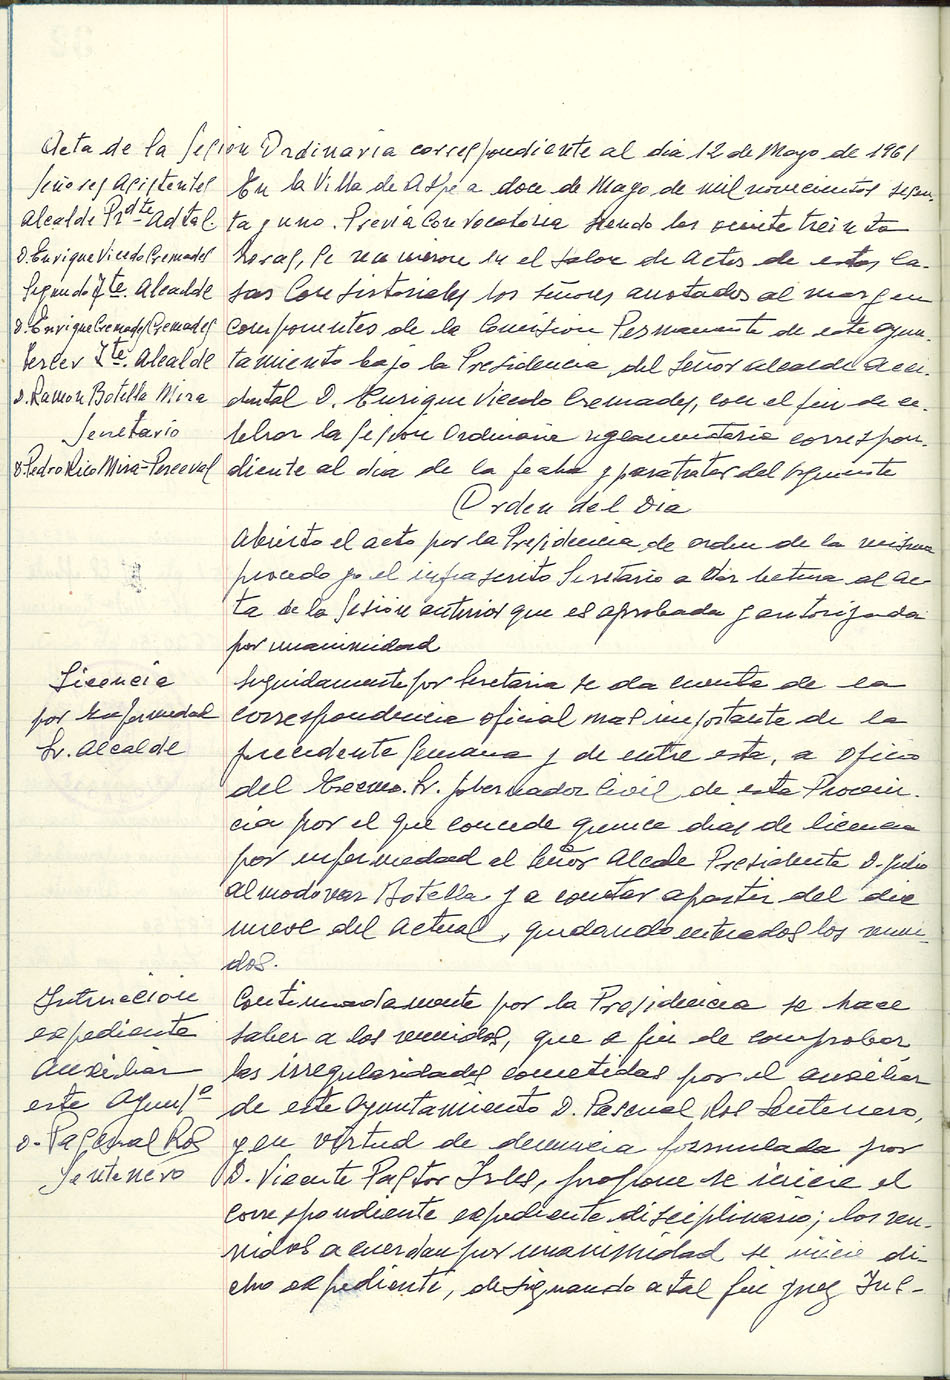 Acta de la Sesion Ordinaria correspondiente al dia 12 de Mayo de 1961
Señores Asistentes
Alcalde Prdte Adtal.
D. Enrique Vicedo Cremades
Segundo Tte. Alcalde
D. Enrique Cremades Cremades
Tercer Tte. Alcalde
D. Ramon Botella Mira
Secretario
D. Pedro Rico Mira-Perceval
En la Villa de Aspe a doce de Mayo de mil novecientos sesen-
ta y uno. Previa Convocatoria siendo las veinte treinta
horas, se reunieron en el Salon de Actos de estas Ca-
sas Consistoriales los señores anotados al margen
componentes de la Comision Permanente de este Ayun-
tamiento bajo la Presidencia del Señor alcalde Acci-
dental D. Enrique Vicedo Cremades, con el fin de ce-
lebrar la Sesion Ordinaria reglamentaria correspon-
diente al dia de la fecha y para tratar del siguiente
Orden del Dia
Abierto el acto por la Presidencia, de orden de la misma
procedo yo el infrascrito Secretario a dar lectura al Ac-
ta de la Sesión anterior que es aprobada y autorizada
por unanimidad
Licencia
por Enfermedad
Sr. Alcalde
Seguidamente por Secretaria se da cuenta de la
correspondencia oficial mas importante de la
precedente Semana y de entre esta, a oficio
del Excmo. Sr. Gobernador Civil de esta Provin-
cia por el que concede quince dias de licencia
por enfermedad al Señor Alcalde Presidente D. Julio
Almodovar Botella y a contar apartir del dia
nueve del Actual, quedando enterados los reuni-
dos.
Intruccion
expediente
Auxiliar
este Ayunto
D. Pascual Ros
Sentenero
Continuadamente por la Presidencia se hace
saber a los reunidos, que a fin de comprobar
las irregularidades cometidas por el auxiliar
de este Ayuntamiento D. Pascual Ros Sentenero,
y en virtud de denuncia formulada por
D. Vicente Pastor propone se inicie el
correspondiente expediente disciplinario; los reu-
nidos acuerdan por unanimidad se inicie di-
cho expediente, designando a tal fin Juez Ins-